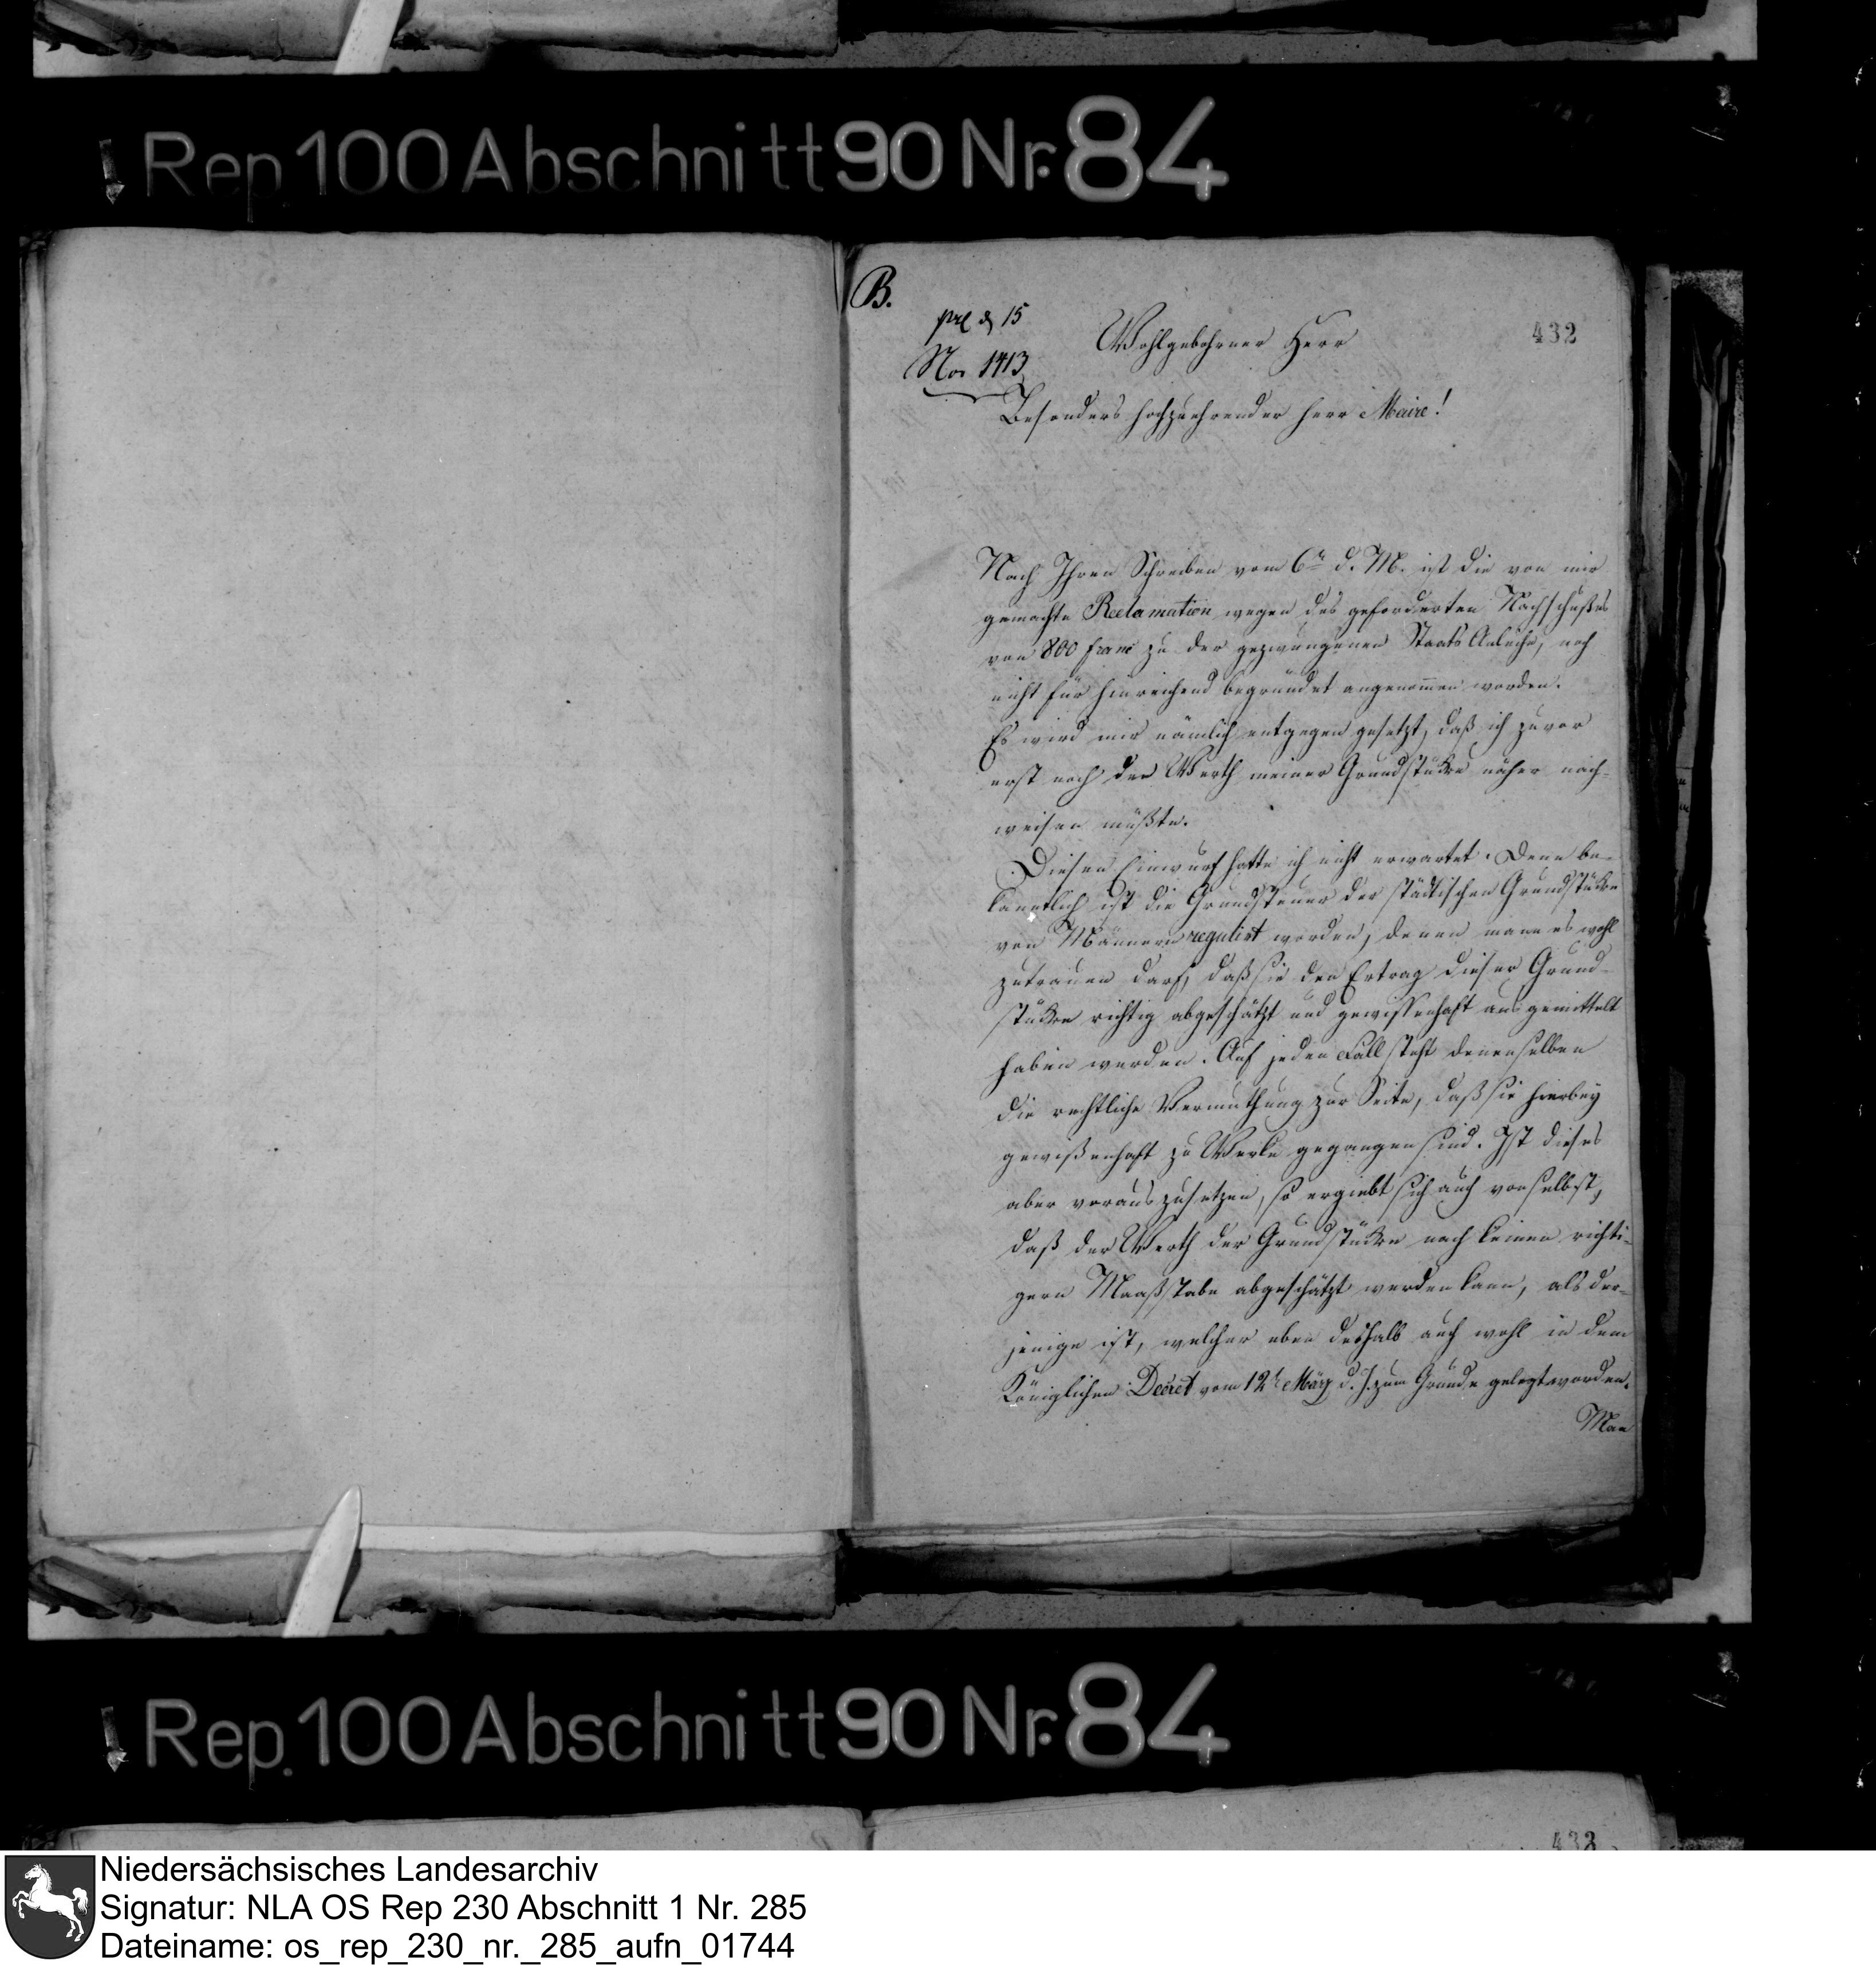 Rep 100 Abschnitt 90 Nr. 84
B.
432
No 1413
Wohlgebohrner Herr
Besonders hochzuehrender Herr Maire!
Nach Ihren Schreiben vom 6ͭ d. M. ist die von mir
gemachte Reclamation wegen des geforderten Nachschußes
von 800 Franc zu der gezwungenen Staats Anleihe, noch
nicht für hinreichend begründet angenom̅en worden.
Es wird mir nämlich entgegen gesetzt, daß ich zuvor
erst noch den Werth meiner Grundstücke näher nach-
weisen müßte.
Diesen Einwurf hatte ich nicht erwartet. Denn be-
kanntlich ist die Grundsteuer der städtischen Grundstücke
von Männern regulirt worden, denen mann es wohl
zutrauen darf, daß sie den Ertrag dieser Grund-
stücke richtig abgeschätzt und gewissenhaft ausgemittelt
haben werden. Auf jeden Fall steht denenselben
die rechtliche Vermuthung zur Seite, daß sie hierbey
gewißenhaft zu Werke gegangen sind. Ist dieses
aber vorauszusetzen, so ergiebt sich auch von selbst,
daß der Werth der Grundstücke nach keinen richti-
gern Maaßstabe abgeschätzt werden kann, als der-
jenige ist, welcher eben deshalb auch wohl in dem
Königlichen Decret vom 12ͭ März d. J. zum Grunde gelegt worden.
Man
Rep. 100 Abschnitt 90 Nr. 84
433
Niedersächsisches Landesarchiv
Signatur: NLA OS Rep 230 Abschnitt 1 Nr. 285
Dateiname: os_rep_230_nr._285_aufn_01744